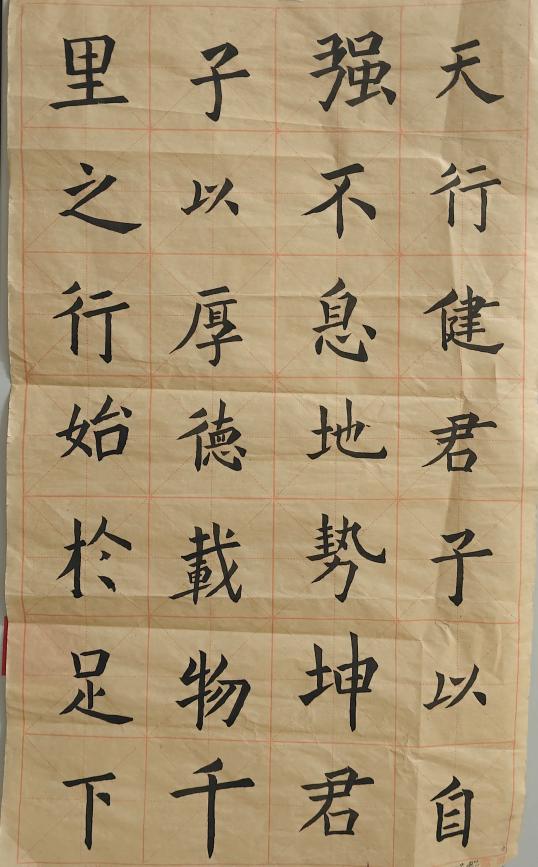 天行健君子以自
强不息地勢坤君
子以厚德載物千
里之行始於足下